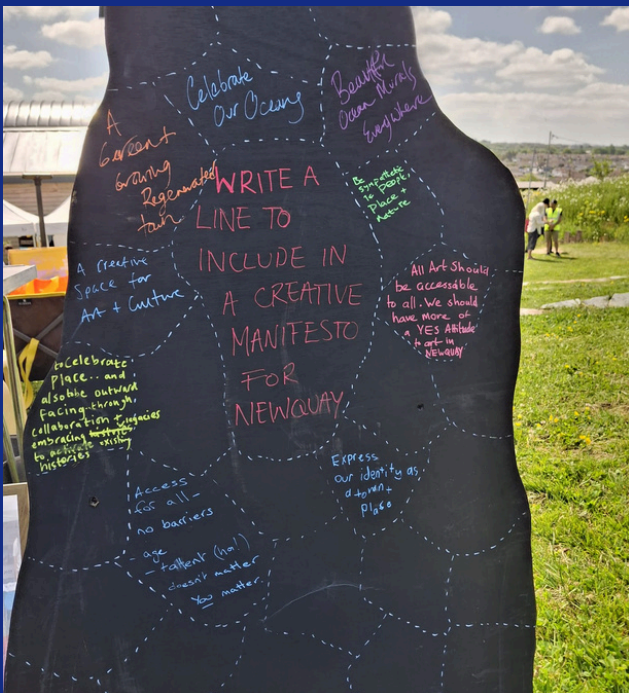 Celebrate
Our Oceans
Beautiful
Ocean Murals
Everywhere
A
Green
Growing
Regenerated
town
WRITE A
LINE TO
INCLUDE IN
A CREATIVE
MANIFESTO
FOR
NEWQUAY
Be
sympathetic
to People,
Place +
nature
A Creative
Space for
Art + Culture
All Art Should
be accessible
to all. We should
have more of
a YES Attitude
to art in
NEWQUAY
to Celebrate
Place.. and
also the outward
facing through,
collaboration +
embracing
to activate existing
histories
Express
our identity as
a town +
place
Access
for all -
no barriers
age
- tallent (ha!)
doesn't matter
You matter.